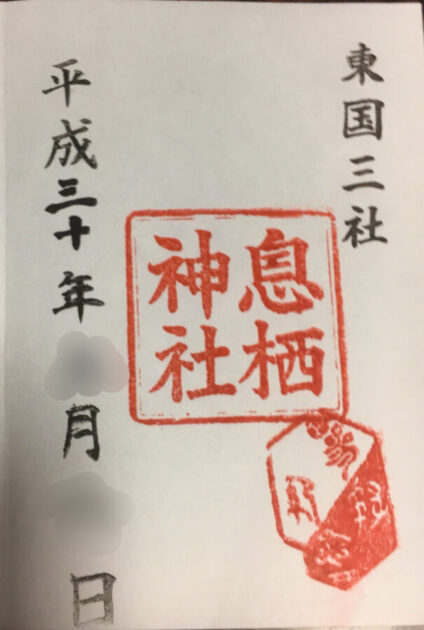 東国三社
息栖
神社
平成三十年
月
日